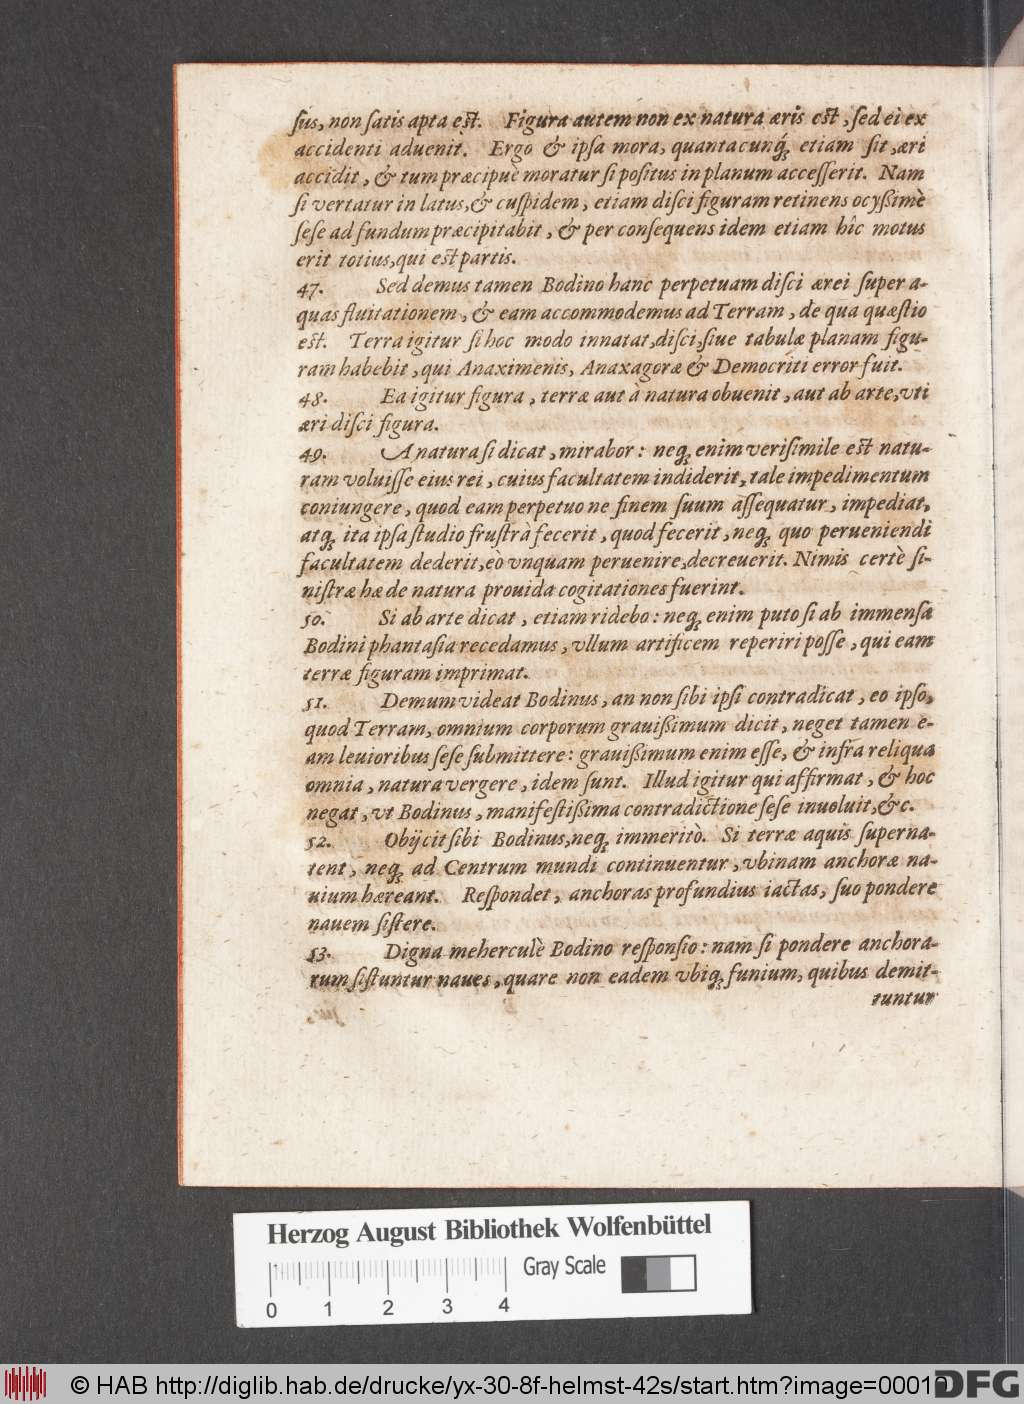 ſus, non ſatis apta eſt. Figura autem non ex natura æris eſt, ſed ei ex
accidenti aduenit. Ergo & ipſa mora, quantacunq́; etiam ſit, æri
accidit, & tum præcipuè moratur ſi poſitus in planum acceſſerit. Nam
ſi vertatur in latus, & cuſpidem, etiam diſci figuram retinens ocyßimè
ſeſe ad fundum præcipitabit, & per conſequens idem etiam hîc motus
erit totius, qui eſt partis.
47. Sed demus tamen Bodino hanc perpetuam diſci ærei ſuper a-
quas fluitationem, & eam accommodemus ad Terram, de qua quæſtio
eſt. Terra igitur ſi hoc modo innatat, diſci, ſiue tabulæ planam figu-
ram habebit, qui Anaximenis, Anaxagoræ & Democriti error fuit.
48. Ea igitur figura, terræ aut à natura obuenit, aut ab arte, vti
æri diſci figura.
49. A natura ſi dicat, mirabor: neq; enim veriſimile eſt natu-
ram voluiſſe eius rei, cuius facultatem indiderit, tale impedimentum
coniungere, quod eam perpetuo ne finem ſuum aſſequatur, impediat,
atq; ita ipſa ſtudio fruſtrà fecerit, quod fecerit, neq; quo perueniendi
facultatem dederit, eò vnquam peruenire, decreuerit. Nimis certè ſi-
niſtræ hæ de natura prouida cogitationes fuerint.
50. Si ab arte dicat, etiam ridebo: neq; enim puto ſi ab immenſa
Bodini phantaſia recedamus, vllum artificem reperiri poſſe, qui eam
terræ figuram imprimat.
51. Demum videat Bodinus, an non ſibi ipſi contradicat, eo ipſo,
quod Terram, omnium corporum grauißimum dicit, neget tamen e-
am leuioribus ſeſe ſubmittere: grauißimum enim eſſe, & infra reliqua
omnia, natura vergere, idem ſunt. Illud igitur qui affirmat, & hoc
negat, vt Bodinus, manifeſtißima contradictione ſeſe inuoluit, &c.
52. Obijcit ſibi Bodinus, neq; immeritò. Si terræ aquis ſuperna-
tent, neq; ad Centrum mundi continuentur, vbinam anchoræ na-
uium hæreant. Reſpondet, anchoras profundius iactas, ſuo pondere
nauem ſiſtere.
53. Digna meherculè Bodino reſponſio: nam ſi pondere anchora-
rum ſiſtuntur naues, quare non eadem vbiq; funium, quibus demit-
tuntur
Herzog August Bibliothek Wolfenbüttel
Gray Scale
0 1 2 3 4
© HAB http://diglib.hab.de/drucke/yx-30-8f-helmst-42s/start.htm?image=00010
DFG